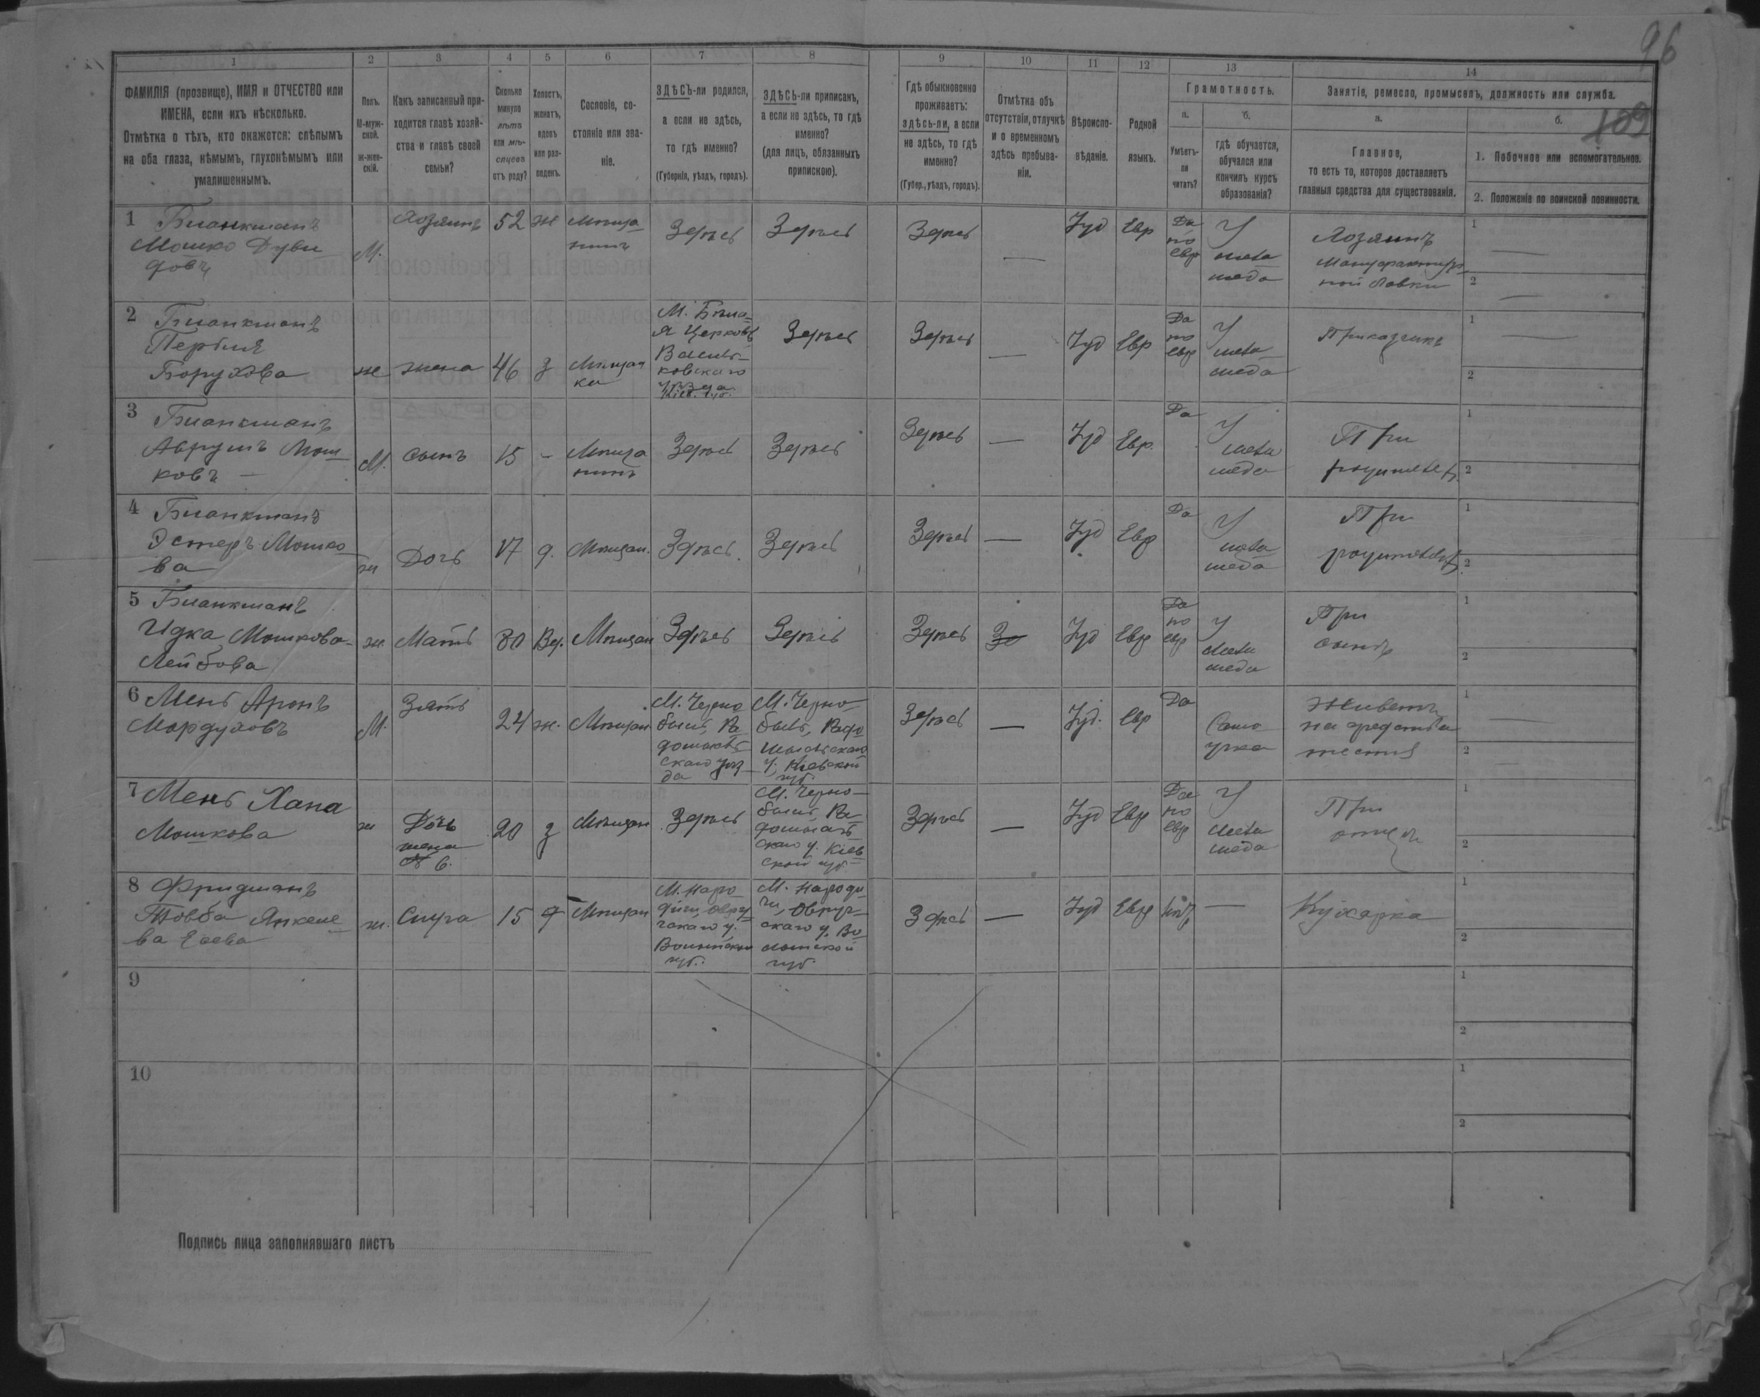 96
109
1 2 3 4 5 6 7 8 9 10 11 12 13 14
ФАМИЛІЯ (прозвище), ИМЯ и ОТЧЕСТВО или
ИМЕНА, если ихъ нѣсколько.
Отмѣтка о тѣхъ, кто окажется: слѣпымъ
на оба глаза, нѣмымъ, глухонѣмымъ или
умалишеннымъ.
Полъ.
М-муж-
ской.
Ж-жен-
скій.
Какъ записанный при-
ходится главѣ хозяй-
ства и главѣ своей
семьи?
Сколько
минуло
лѣтъ
или мѣ-
сяцевъ
отъ роду?
Холостъ,
женатъ,
вдовъ
или раз-
веденъ.
Сословіе, со-
стояніе или зва-
ніе.
ЗДѢСЬ-ли родился,
а если не здѣсь,
то гдѣ именно?
(Губернія, уѣздъ, городъ).
ЗДѢСЬ-ли приписанъ,
а если не здѣсь, то гдѣ
именно?
(для лицъ, обязанныхъ
припискою).
Гдѣ обыкновенно
проживаетъ:
здѣсь-ли, а если
не здѣсь, то гдѣ
именно?
(Губер., уѣздъ, городъ).
Отмѣтка объ
отсутствіи, отлучкѣ
и о временномъ
здѣсь пребыва-
ніи.
Вѣроиспо-
вѣданіе.
Родной
языкъ.
Грамотность.
а.
Умѣетъ-
ли
читать?
б.
гдѣ обучается,
обучался или
кончилъ курсъ
образованія?
Занятіе, ремесло, промыселъ, должность или служба.
а.
Главное,
то есть то, которое доставляетъ
главныя средства для существованія.
б.
1. Побочное или вспомогательное.
2. Положеніе по воинской повинности.
1 Бианкманъ
Мошко Дуви
довъ
М.
Хозяинъ
52
ж
Мѣща
нинъ
Здѣсь
Здѣсь
Здѣсь
—
Іуд
Евр
Да
по
евр
У
мела
меда
Хозяинъ
мануфактур
ной лавки
1 —
2 —
2 Бианкманъ
Перля
Борухова
ж
жена
46
з
Мѣщан
ка
М. Бѣла-
я Церковь
Василь-
ковскаго
уѣзда
Кіев. губ.
Здѣсь
Здѣсь
—
Іуд
Евр
Да
по
евр
У
мела
меда
Приказчик
1 —
2
3 Бианкманъ
Аврумъ Мош
ковъ —
М.
сынъ
15
-
Мѣща
нинъ
Здѣсь
Здѣсь
Здѣсь
—
Іуд
Евр.
Да
У
мела
меда
При
1
2
4 Бианкманъ
Эстеръ Мошко
ва
ж
Дочь
17
д.
Мѣщан.
Здѣсь.
Здѣсь
Здѣсь
—
Іуд
Евр
Да
У
мела
меда
При
1
2
5 Бианкманъ
Идка Мошкова-
Лейбова
ж.
Мать
80
Вд.
Мѣщан
Здѣсь
Здѣсь
Здѣсь
Зд
Іуд
Евр
Да
по
евр
У
мела
меда
При
сынѣ
1
2
6 Мень Аронъ
Мордуховъ
М.
Зять
24
ж.
Мѣщан
М. Черно
быль, Ра
домысль
скаго уѣз
да
М. Черно-
быль, Радо
мысльскаго
у. Кіевской
губ.
Здѣсь
—
Іуд.
Евр
Да
Само
учка
Живетъ
на средства
тестя
1 —
2
7 Мень Хана
Мошкова
ж
Дочь
жена
№ 6.
20
з
Мѣщан
Здѣсь
М. Черно-
быль Ра-
домысль
скаго у. Кіев
ской губ
Здѣсь
—
Іуд
Евр
Да
по
евр
У
мела
меда
При
отцѣ
1
2
8 Фридманъ
Товба Янкеле
ва
ж.
Слуга
15
д
Мѣщан
М. Наро
дичи, Овру
чскаго у.
Волынской
губ.
М. Народи
чи, Овруч-
скаго у. Во
лынской
губ
Здѣсь
—
Іуд
Евр
нѣт
—
Кухарка
1
2
9
1
2
10
1
2
Подпись лица заполнявшаго листъ